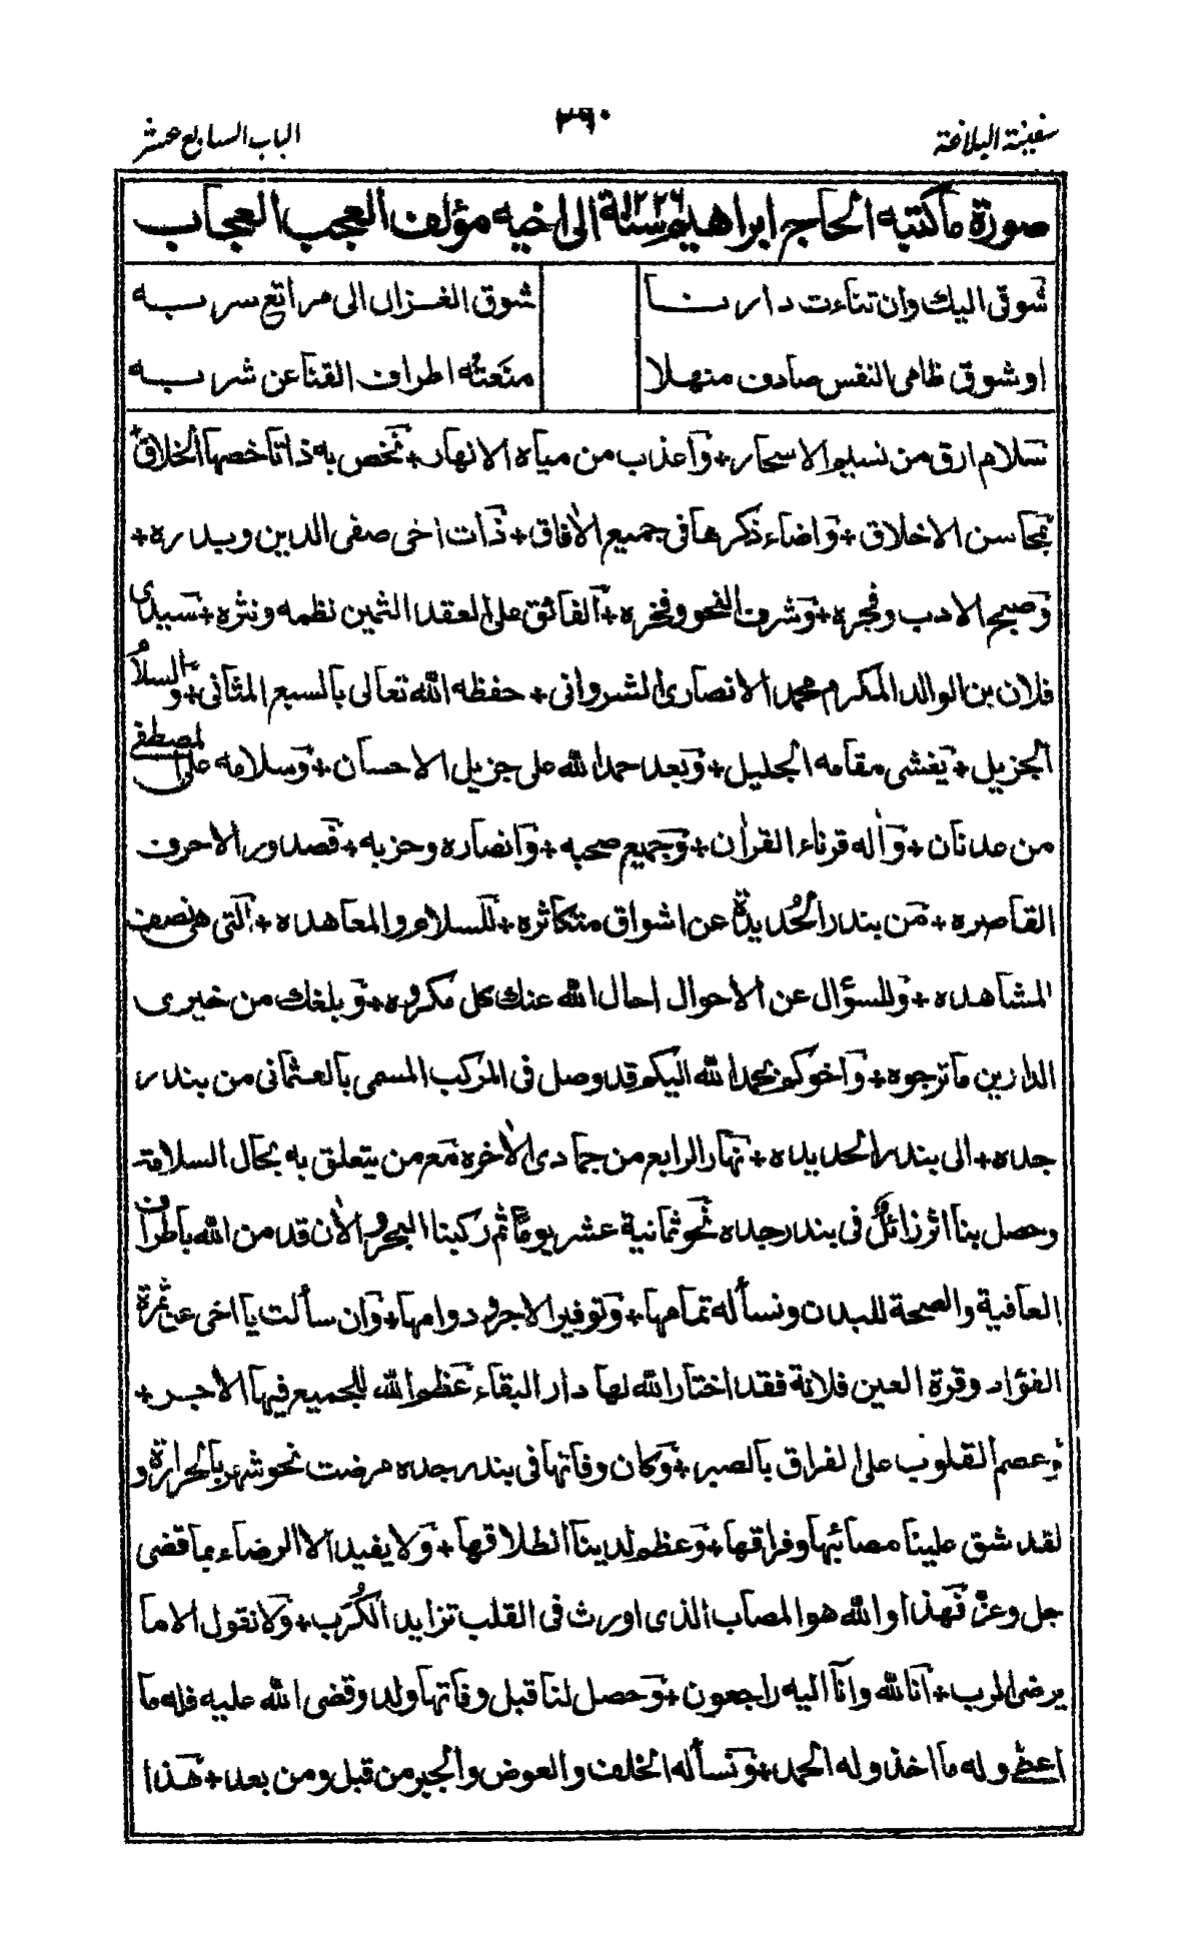 سفينة البلاغة
٣٩٠
الباب السابع عشر
صورة ما كتبه الحاج ابراهيم سنة ١٢٢٦ الى اخيه مؤلف العجب العجاب
شوقى اليك وان تناءت دارنا شوق الغزال الى مراتع سربه
او شوق ظامى النفس صادف منهلا منعته اطراف القنا عن شربه
سلام ارق من نسيم الاسحار+ واعذب من مياه الانهار+ نخص به ذاتا خصها الخلاق+
بمحاسن الاخلاق+ واضاء ذكرها فى جميع الآفاق+ ذات اخى صفى الدين وبدره+
وصبح الادب وفجره+ وشرف النحو وفخره+ الفائق على العقد الثمين نظمه ونثره+ سيدى
فلان بن الوالد المكرم محمد الانصارى الشروانى+ حفظه الله تعالى بالسبع المثانى+ والسلام
الجزيل+ يغشى مقامه الجليل+ وبعد حمدا لله على جزيل الاحسان+ وسلامه على المصطفى
من عدنان+ وآله قرناء القرآن+ وجميع صحبه+ وانصاره وحزبه+ فصدور الاحرف
القاصره+ من بندر الحُديدة عن اشواق متكاثره+ للسلام والمعاهده+ التى هى نصف
المشاهده+ وللسؤال عن الاحوال احال الله عنك كل مكروه+ وبلغك من خيرى
الدارين ما ترجوه+ واخوكم بحمد الله اليكم قد وصل فى المركب المسمى بالعثمانى من بندر
جده+ الى بندر الحديده+ نهار الرابع من جمادى الآخره مع من يتعلق به بحال السلامة
وحصل بنا اثر زائلٌ فى بندر جده نحو ثمانية عشر يومًا ثم ركبنا البحر والآن قد من الله باطراف
العافية والصحة للبدن ونسأله تمامها+ وتوفير الاجر ودوامها+ وان سألت يا اخى عن ثمرة
الفؤاد وقرة العين فلانة فقد اختار الله لها دار البقاء عظم الله للجميع فيها الاجر+
وعصم القلوب على الفراق بالصبر+ وكان وفاتها فى بندر جده مرضت نحو شهر بالحرارة و
لقد شق علينا مصائبها وفراقها+ وعظم لدينا انطلاقها+ ولا يفيد الا الرضاء بما قضى
جل وعز فهذا والله هو المصاب الذى اورث فى القلب تزايد الكُرَب+ ولا نقول الا ما
يرضى الرب+ انا لله وانا اليه راجعون+ وحصل لنا قبل وفاتها ولد وقضى الله عليه فله ما
اعطى وله ما اخذ وله الحمد+ ونسأله الخلف والعوض والجبر من قبل ومن بعد+ هذا